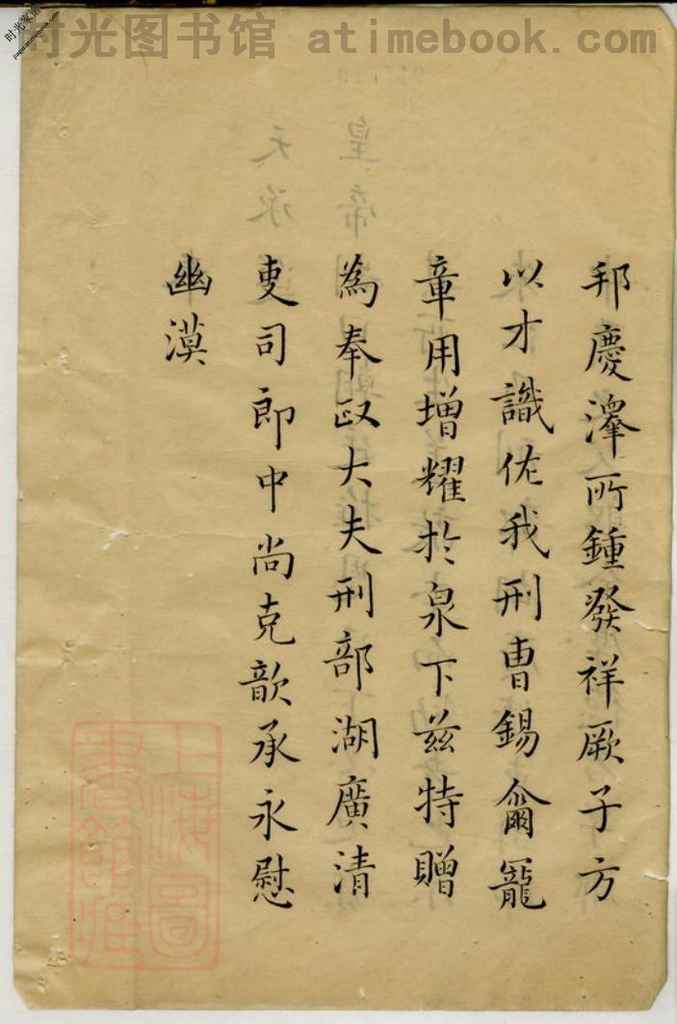 时光图书馆 atimebook.com
邦慶澤所鍾發祥厥子方
以才識佐我刑曹錫爾寵
章用增耀於泉下兹特贈
為奉政大夫刑部湖廣清
吏司郎中尚克歆承永慰
幽漠
上海圖書館藏